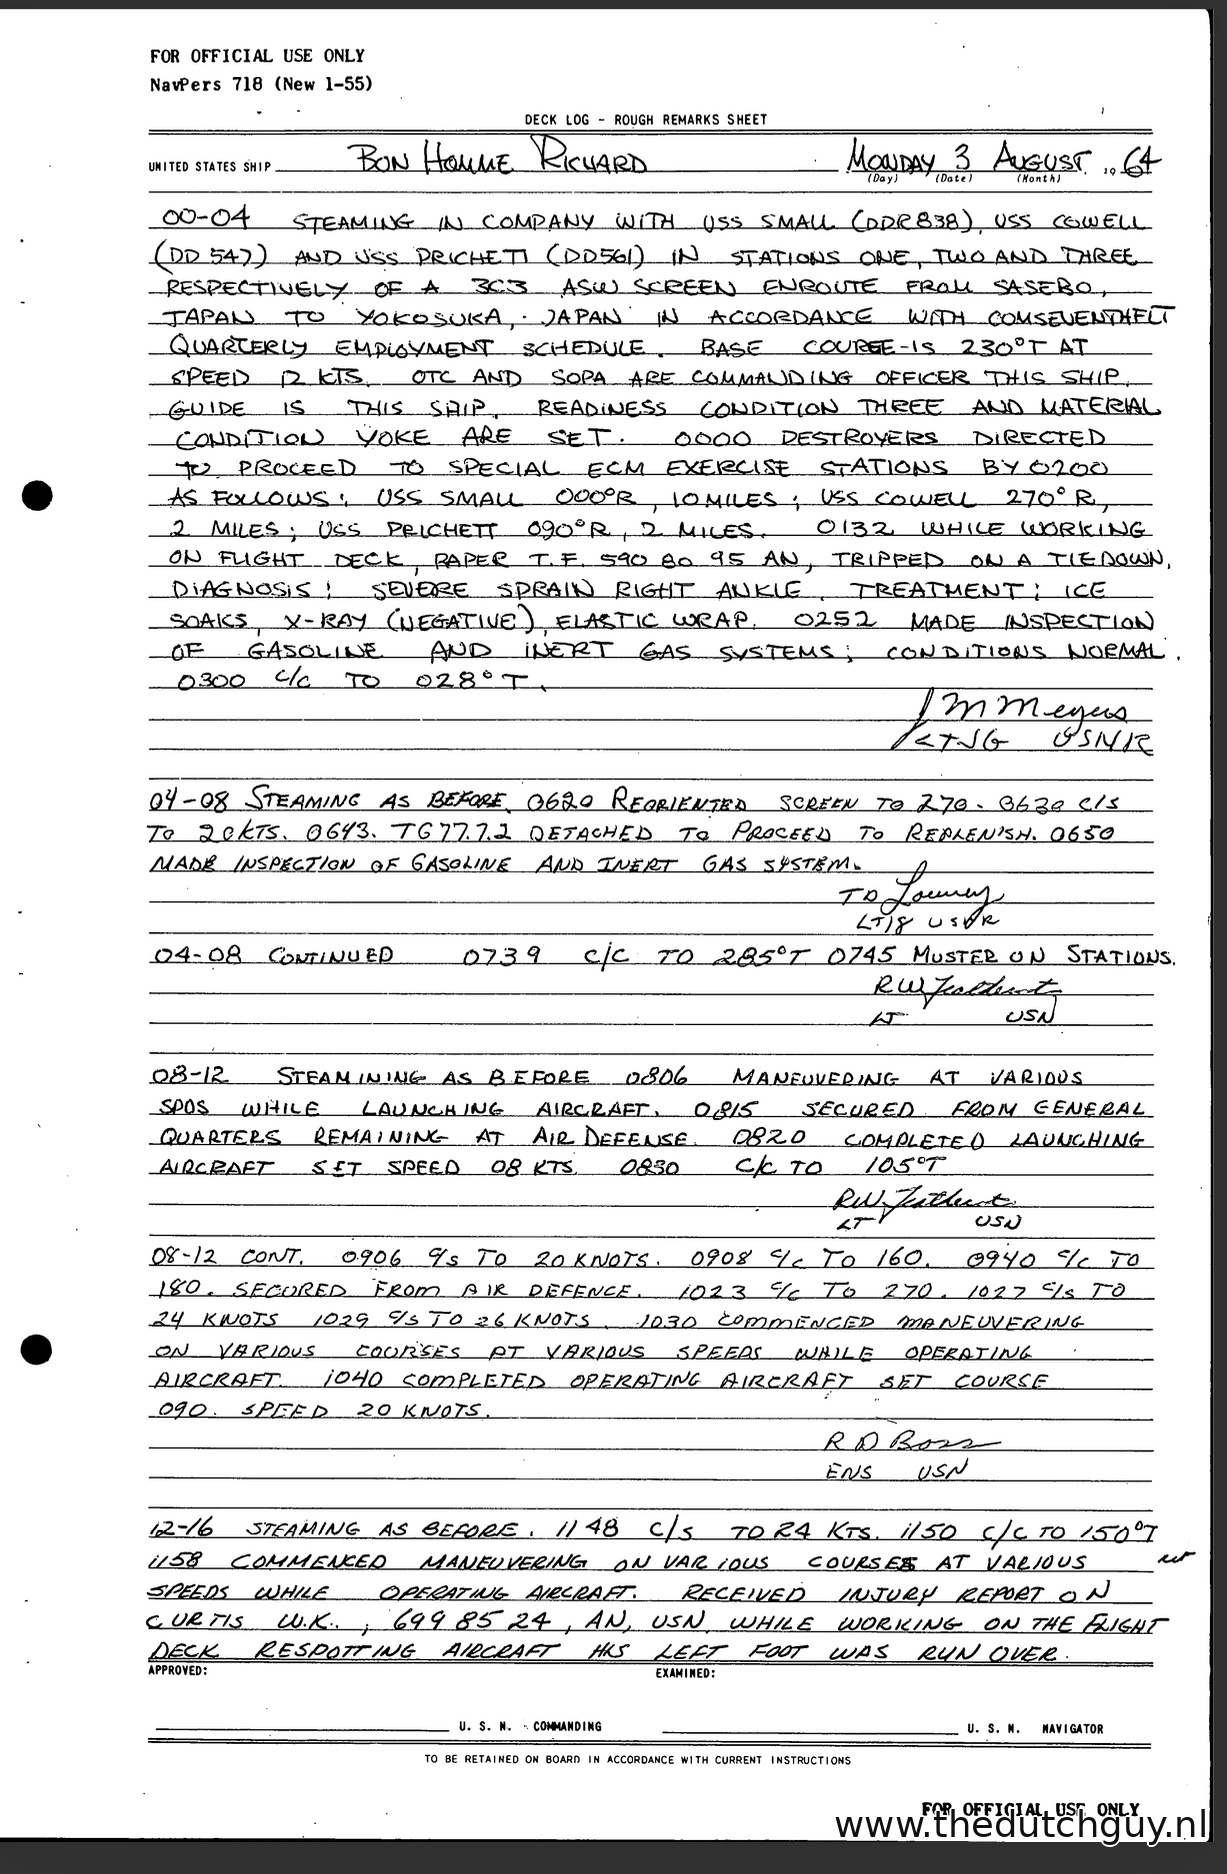 FOR OFFICIAL USE ONLY
NavPers 718 (New 1-55)
DECK LOG - ROUGH REMARKS SHEET
UNITED STATES SHIP BON HOMME RICHARD MONDAY 3 AUGUST, 1964
(Day) (Date) (Month)
00-04 STEAMING IN COMPANY WITH USS SMALL (DDR838), USS COWELL
(DD 547) AND USS PRICHETT (DD561) IN STATIONS ONE, TWO AND THREE
RESPECTIVELY OF A 3C3 ASW SCREEN ENROUTE FROM SASEBO,
JAPAN TO YOKOSUKA, JAPAN IN ACCORDANCE WITH COMSEVENTHFLT
QUARTERLY EMPLOYMENT SCHEDULE. BASE COURSE IS 230°T AT
SPEED 12 KTS. OTC AND SOPA ARE COMMANDING OFFICER THIS SHIP.
GUIDE IS THIS SHIP. READINESS CONDITION THREE AND MATERIAL
CONDITION YOKE ARE SET. 0000 DESTROYERS DIRECTED
TO PROCEED TO SPECIAL ECM EXERCISE STATIONS BY 0200
AS FOLLOWS: USS SMALL 000°R, 10 MILES; USS COWELL 270°R,
2 MILES; USS PRICHETT 090°R, 2 MILES. 0132 WHILE WORKING
ON FLIGHT DECK, RAPER T.F. 590 80 95 AN, TRIPPED ON A TIEDOWN.
DIAGNOSIS: SEVERE SPRAIN RIGHT ANKLE. TREATMENT: ICE
SOAKS, X-RAY (NEGATIVE), ELASTIC WRAP. 0252 MADE INSPECTION
OF GASOLINE AND INERT GAS SYSTEMS; CONDITIONS NORMAL.
0300 C/C TO 028°T.
J M Meyers
LTJG USNR
04-08 STEAMING AS BEFORE. 0620 REORIENTED SCREEN TO 270. 0630 C/S
TO 20KTS. 0643. TG77.7.2 DETACHED TO PROCEED TO REPLENISH. 0650
MADE INSPECTION OF GASOLINE AND INERT GAS SYSTEM.
TD
LTJG USNR
04-08 CONTINUED 0739 C/C TO 285°T 0745 MUSTER ON STATIONS.
RW
LT USN
08-12 STEAMINING AS BEFORE 0806 MANEUVERING AT VARIOUS
SPDS WHILE LAUNCHING AIRCRAFT. 0815 SECURED FROM GENERAL
QUARTERS REMAINING AT AIR DEFENSE. 0820 COMPLETED LAUNCHING
AIRCRAFT SET SPEED 08 KTS 0830 C/C TO 105°T
RW
LT USN
08-12 CONT. 0906 C/S TO 20 KNOTS. 0908 C/C TO 160. 0940 C/C TO
180. SECURED FROM AIR DEFENCE. 1023 C/C TO 270. 1027 C/S TO
24 KNOTS 1029 C/S TO 26 KNOTS. 1030 COMMENCED MANEUVERING
ON VARIOUS COURSES AT VARIOUS SPEEDS WHILE OPERATING
AIRCRAFT. 1040 COMPLETED OPERATING AIRCRAFT SET COURSE
090. SPEED 20 KNOTS.
R D Boss
ENS USN
12-16 STEAMING AS BEFORE. 1148 C/S TO 24 KTS. 1150 C/C TO 150°T
1158 COMMENCED MANEUVERING ON VARIOUS COURSES AT VARIOUS
SPEEDS WHILE OPERATING AIRCRAFT. RECEIVED INJURY REPORT ON
CURTIS W.K., 699 85 24, AN, USN, WHILE WORKING ON THE FLIGHT
DECK RESPOTTING AIRCRAFT HIS LEFT FOOT WAS RUN OVER.
APPROVED: EXAMINED:
U. S. N. COMMANDING U. S. N. NAVIGATOR
TO BE RETAINED ON BOARD IN ACCORDANCE WITH CURRENT INSTRUCTIONS
FOR OFFICIAL USE ONLY
www.thedutchguy.nl